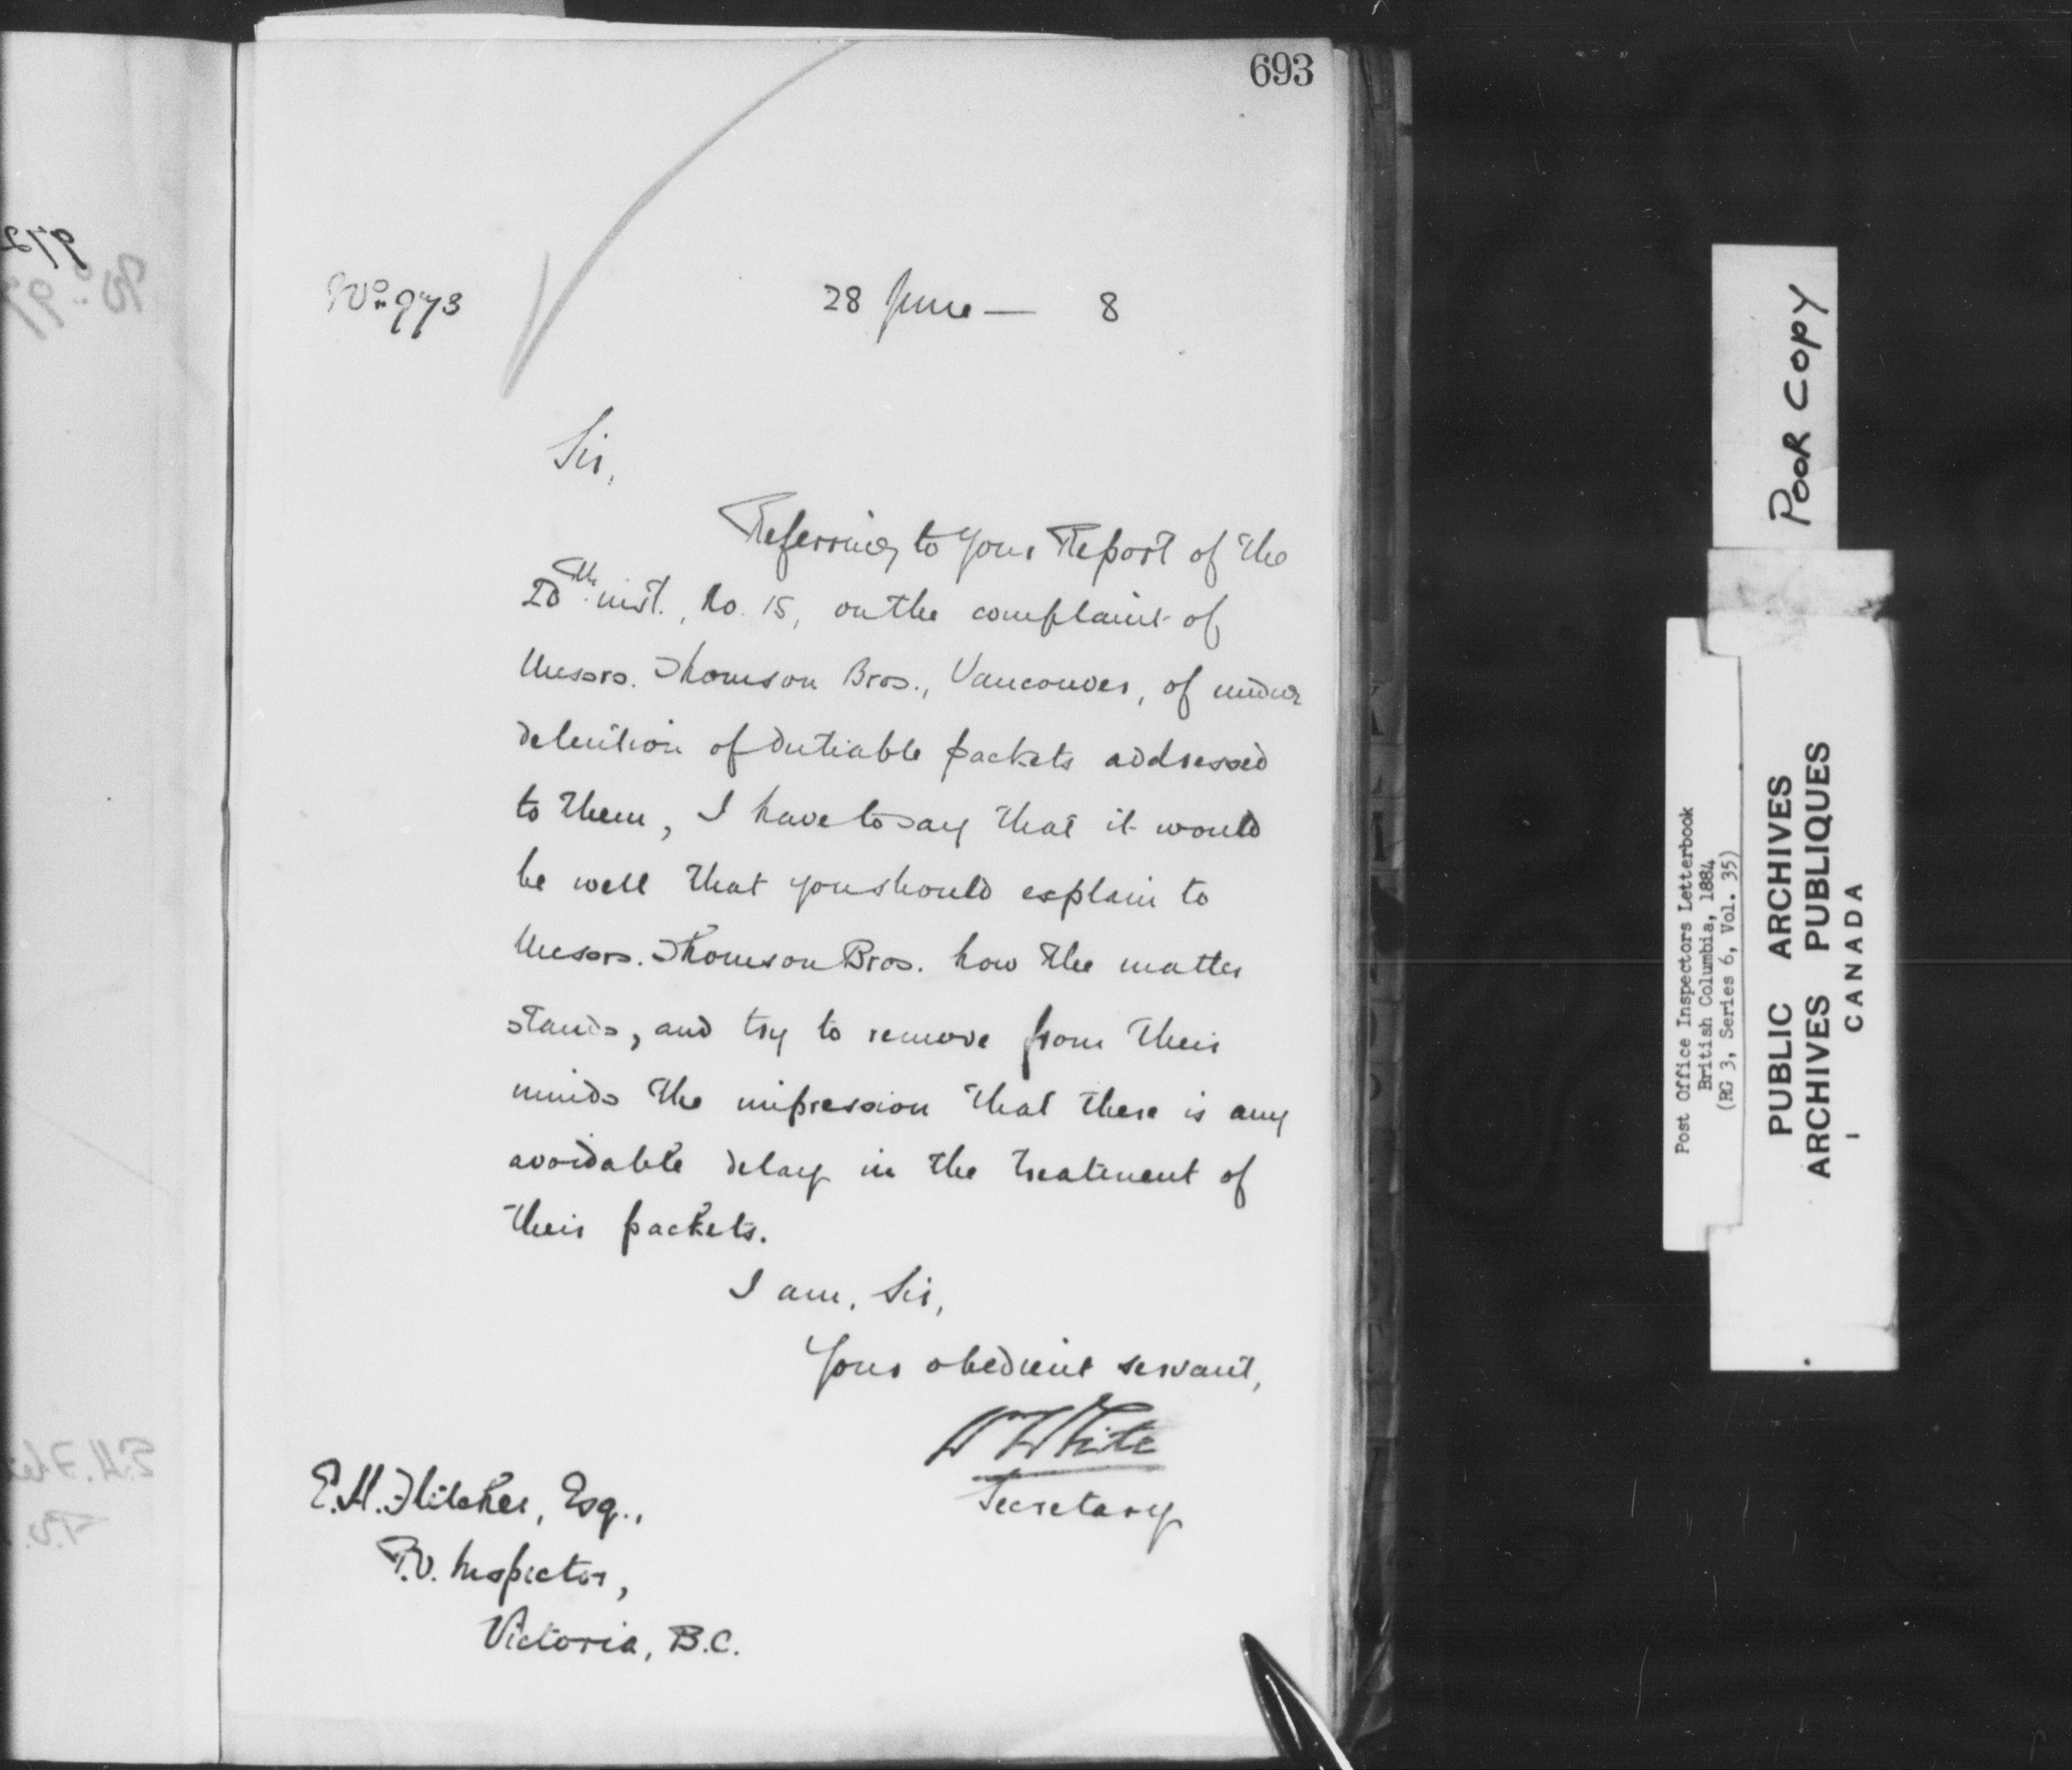 693
No. 973
28 June — 8
Sir,
Referring to your Report of the
20th inst., No. 15, on the complaint of
Messrs. Thomson Bros., Vancouver, of undue
detention of dutiable packets addressed
to them, I have to say that it would
be well that you should explain to
Messrs. Thomson Bros. how the matter
stands, and try to remove from their
minds the impression that there is any
avoidable delay in the treatment of
their packets.
I am, Sir,
Your obedient servant,
W White
Secretary
E.H. Fletcher, Esq.,
P.O. Inspector,
Victoria, B.C.
POOR COPY
Post Office Inspectors Letterbook
British Columbia, 1884
(RG 3, Series 6, Vol. 35)
PUBLIC ARCHIVES
ARCHIVES PUBLIQUES
CANADA